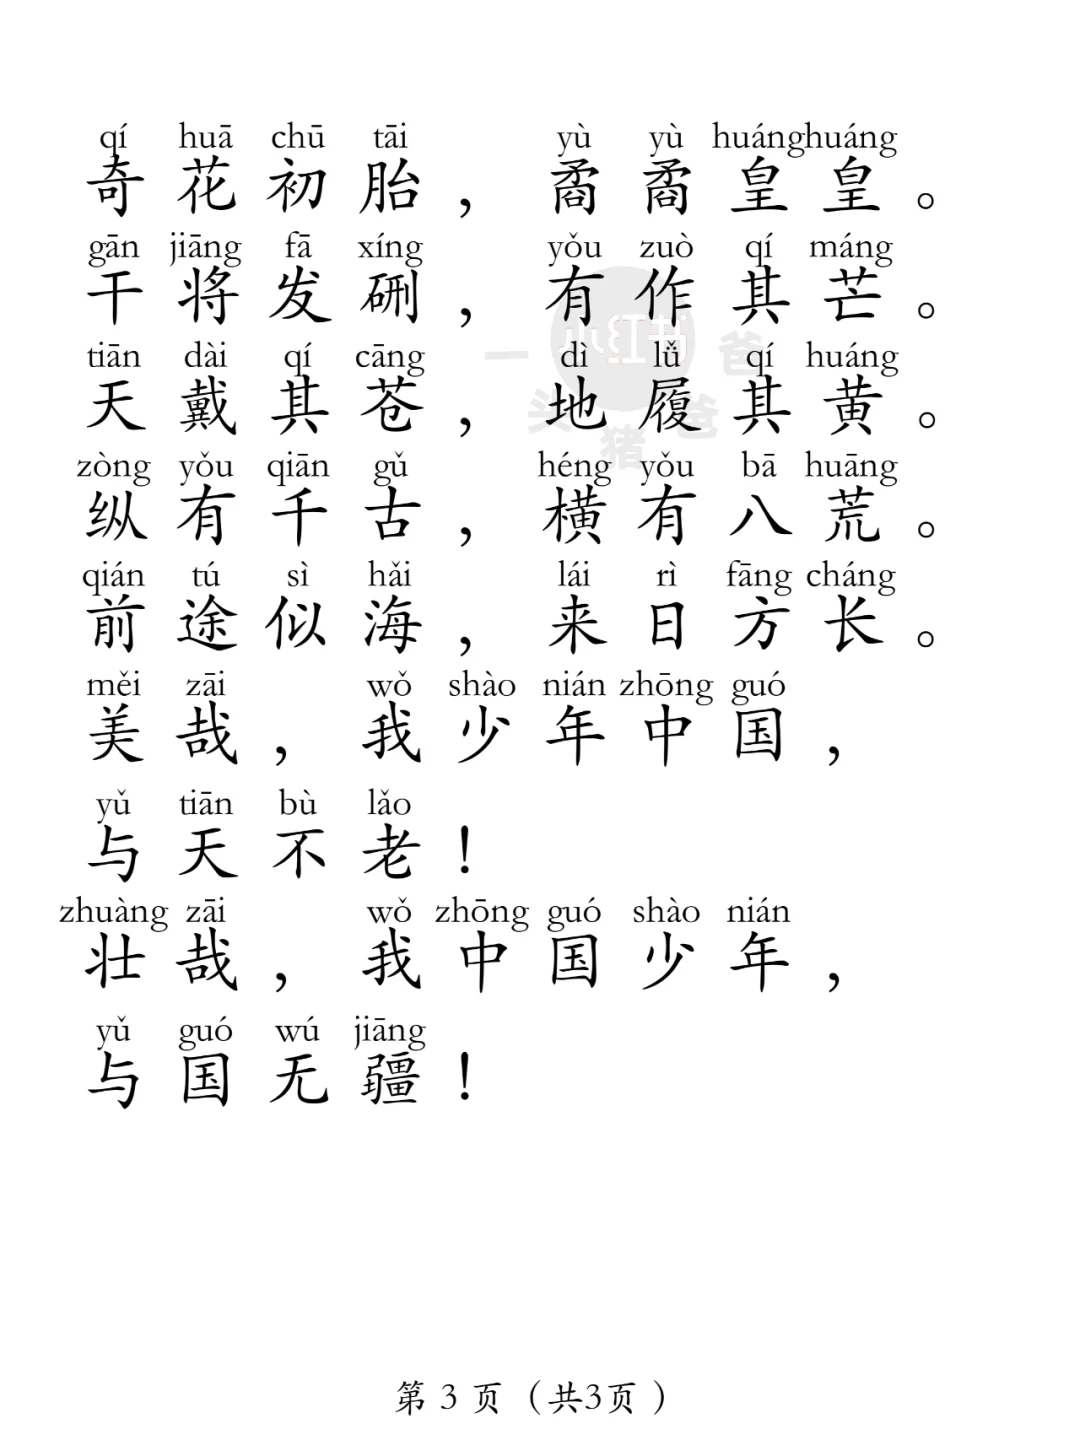 qí huā chū tāi yù yù huáng huáng
奇花初胎，矞矞皇皇。
gān jiāng fā xíng yǒu zuò qí máng
干将发硎，有作其芒。
tiān dài qí cāng dì lǚ qí huáng
天戴其苍，地履其黄。
zòng yǒu qiān gǔ héng yǒu bā huāng
纵有千古，横有八荒。
qián tú sì hǎi lái rì fāng cháng
前途似海，来日方长。
měi zāi wǒ shào nián zhōng guó
美哉，我少年中国，
yǔ tiān bù lǎo
与天不老！
zhuàng zāi wǒ zhōng guó shào nián
壮哉，我中国少年，
yǔ guó wú jiāng
与国无疆！
小红书
一头猪爸爸
第 3 页（共3页）